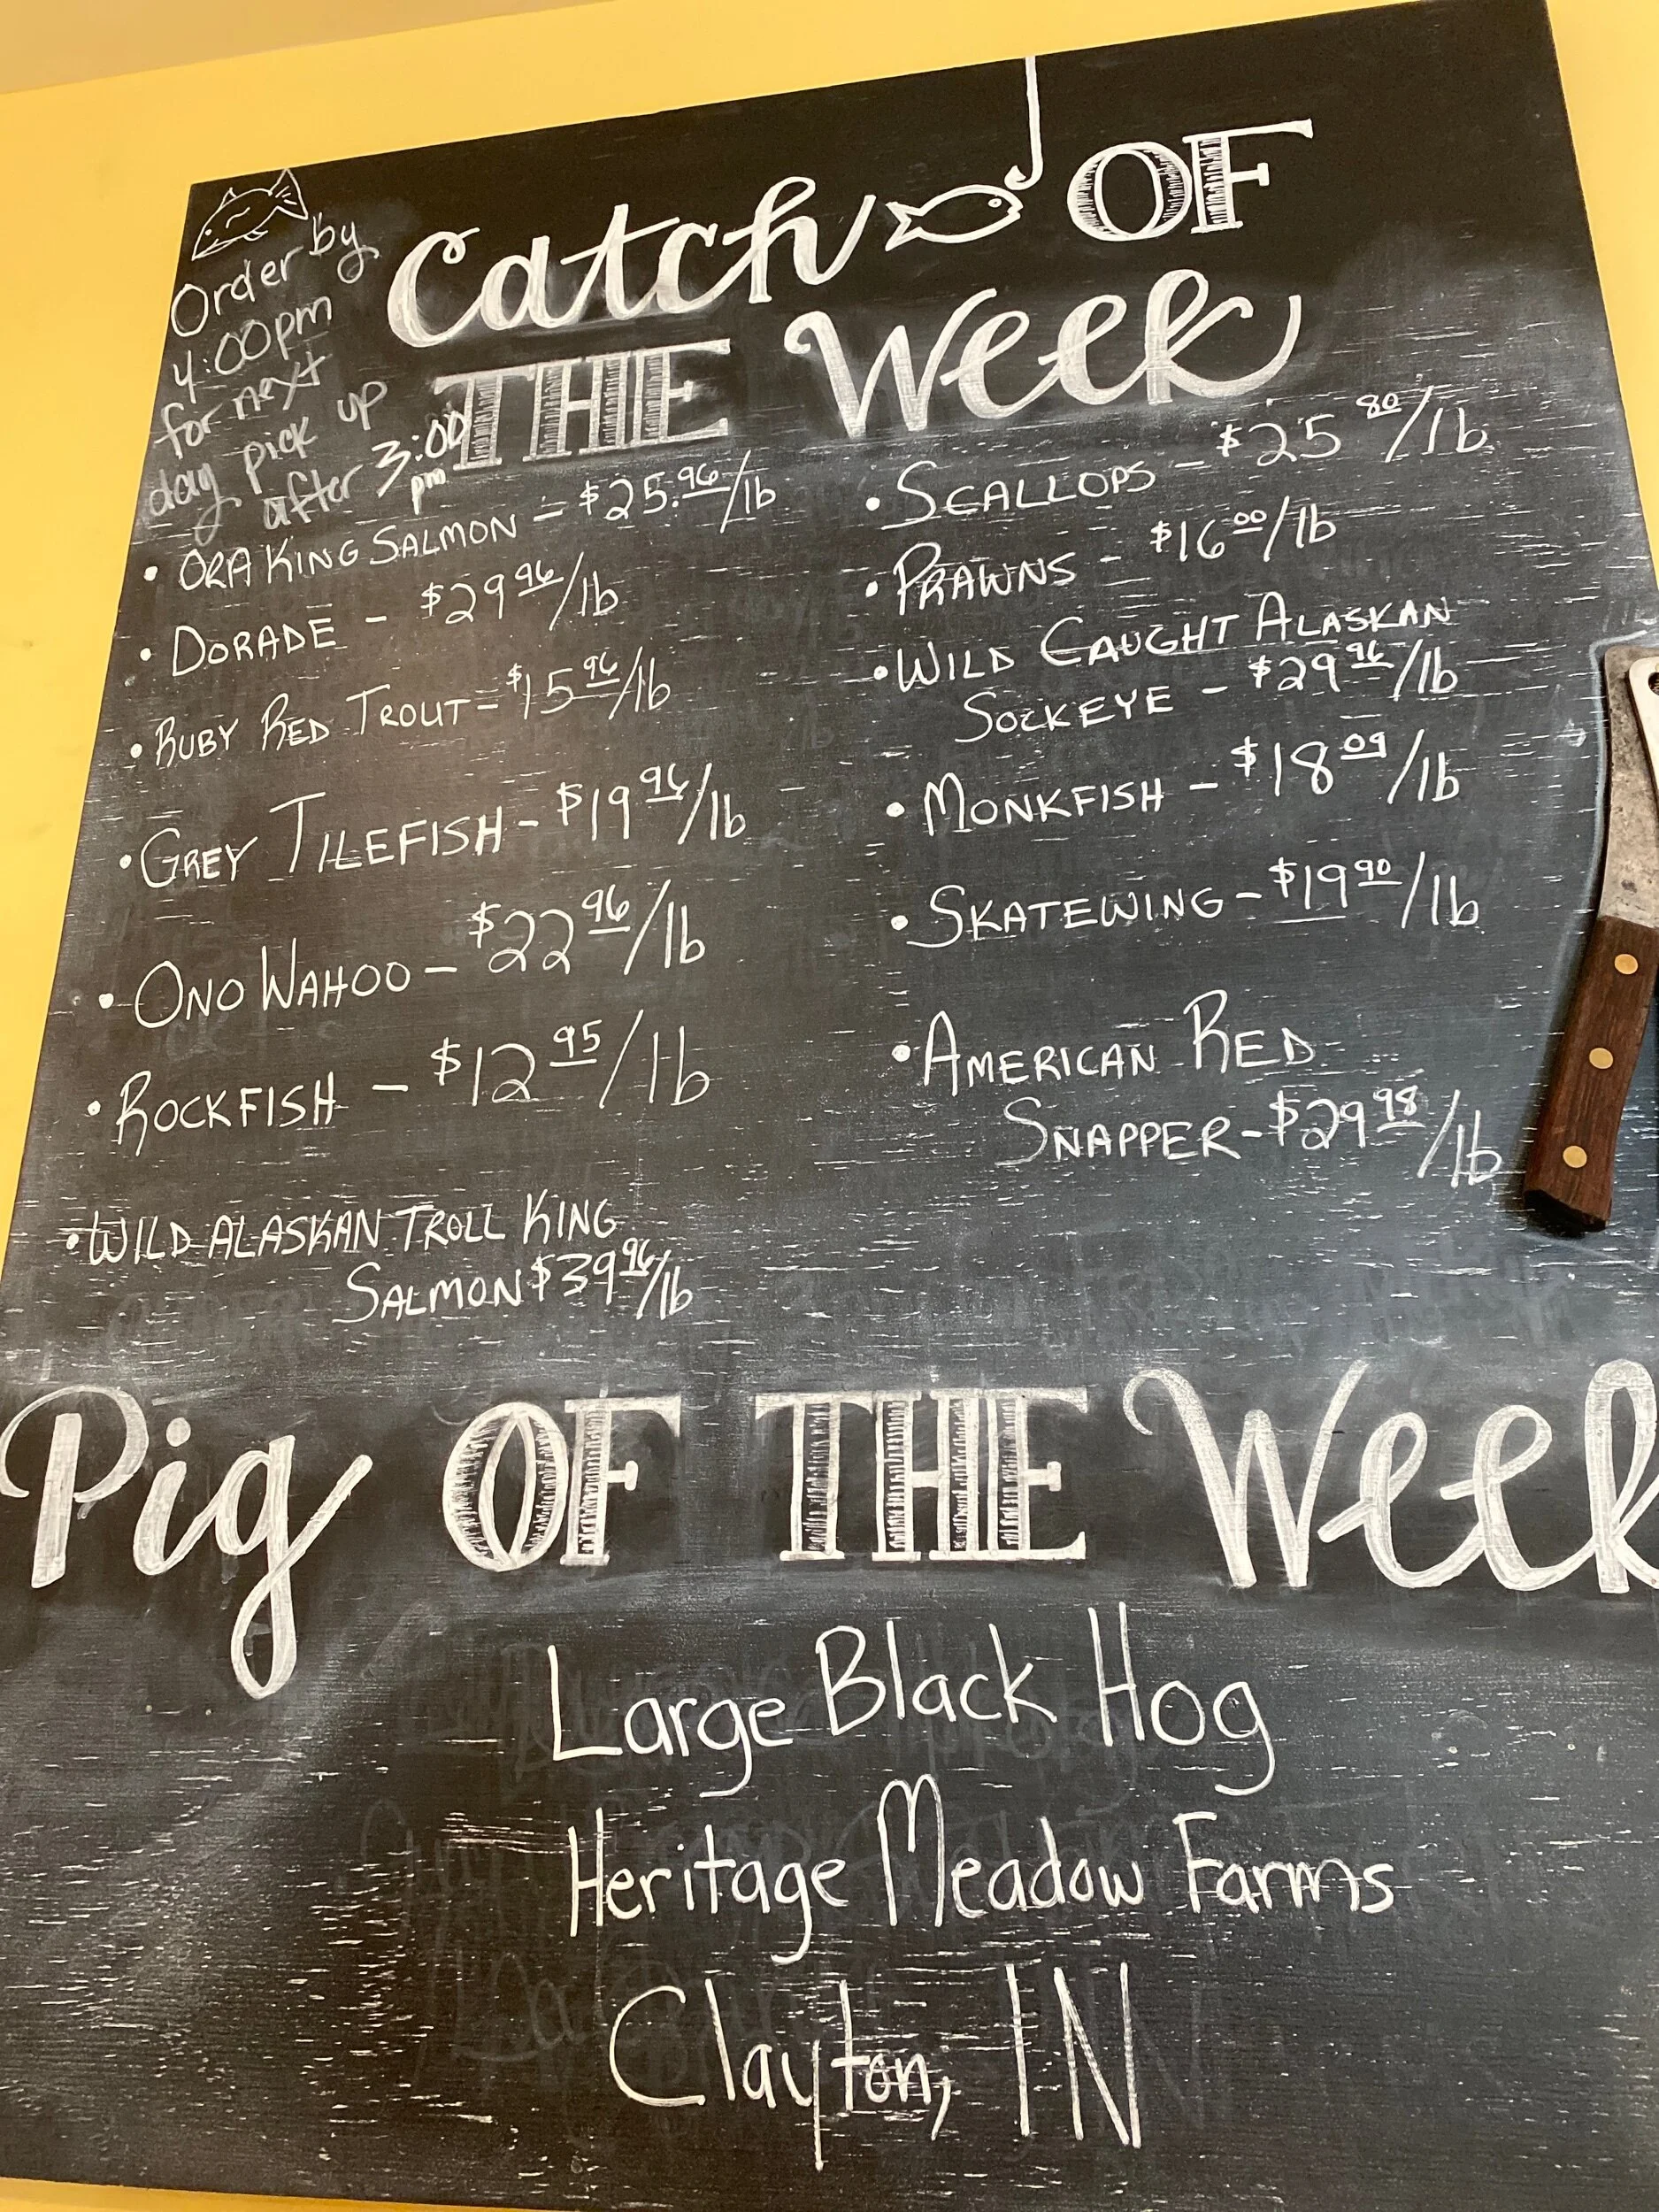 Order by
4:00pm
for next
day pick up
after 3:00
pm
Catch OF
THE Week
• ORA KING SALMON - $25.96/lb
• DORADE - $29 96/lb
• RUBY RED TROUT - $15 96/lb
• GREY TILEFISH - $19 96/lb
• ONO WAHOO - $22 96/lb
• ROCKFISH - $12 95/lb
• WILD ALASKAN TROLL KING
SALMON $39 96/lb
• SCALLOPS - $25 80/lb
• PRAWNS - $16 00/lb
• WILD CAUGHT ALASKAN
SOCKEYE - $29 96/lb
• MONKFISH - $18 09/lb
• SKATEWING - $19 90/lb
• AMERICAN RED
SNAPPER - $29 98/lb
Pig OF THE Week
Large Black Hog
Heritage Meadow Farms
Clayton, IN